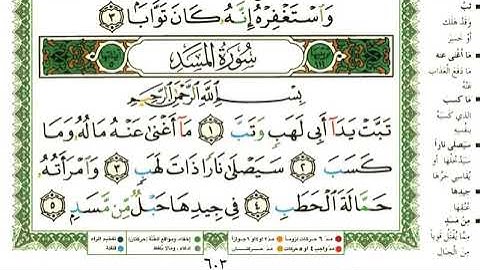 وَاسْتَغْفِرْهُ إِنَّهُ كَانَ تَوَّابًا ٣
سُورَةُ الْمَسَدِ
بِسْمِ اللَّهِ الرَّحْمَٰنِ الرَّحِيمِ
تَبَّتْ يَدَا أَبِي لَهَبٍ وَتَبَّ ١ مَا أَغْنَىٰ عَنْهُ مَالُهُ وَمَا
كَسَبَ ٢ سَيَصْلَىٰ نَارًا ذَاتَ لَهَبٍ ٣ وَامْرَأَتُهُ
حَمَّالَةَ الْحَطَبِ ٤ فِي جِيدِهَا حَبْلٌ مِّن مَّسَدٍ ٥
تَبَّ
وَقَدْ هَلَكَ
أَوْ خَسِرَ
مَا أَغْنَى عَنه
مَا دَفَعَ الْعَذَابَ
عَنْهُ
مَا كَسَبَ
الَّذِي كَسَبَهُ
بِنَفْسِهِ
سَيَصْلَى نَارًا
سَيَدْخُلُهَا أَوْ
يُقَاسِي حَرَّهَا
جِيدِهَا
عُنُقِهَا
مِنْ مَسَدٍ
مِمَّا يُفْتَلُ قَوِيًّا
مِنَ الْحِبَالِ
٦٠٣